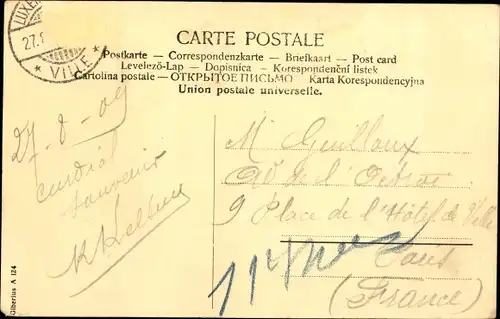 LUXEM
27.
VILLE
CARTE POSTALE
Postkarte — Correspondenzkarte — Briefkaart — Post card
Levelező-Lap — Dopisnica — Korespondenční listek
Cartolina postale — ОТКРЫТОЕ ПИСЬМО — Karta Korespondencyjna
Union postale universelle.
27-8-09
cordial
souvenir
M Guillaux
de l'
9 Place de l'Hôtel de Ville
Paris
(France)
Giberius A 124